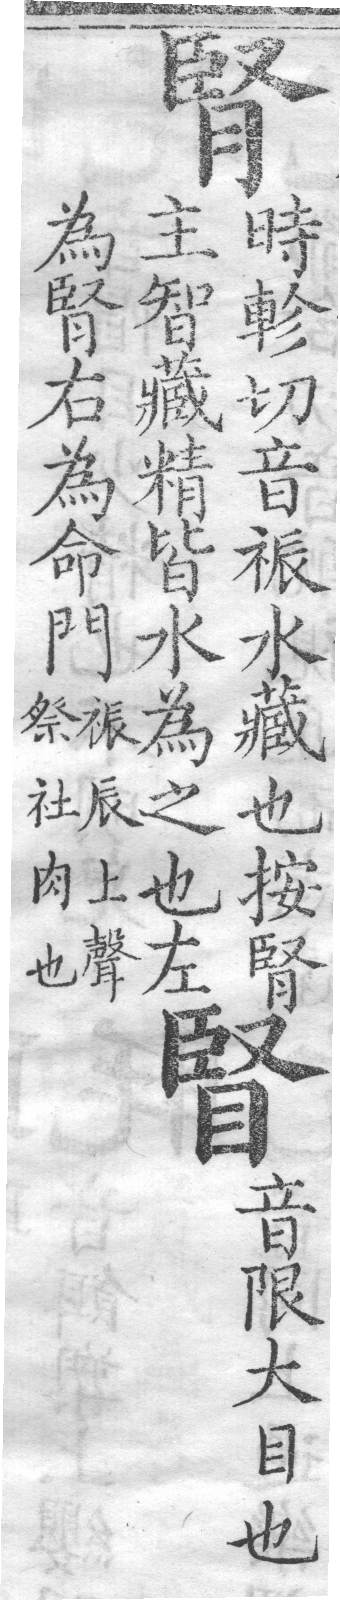 腎
時軫切音祳水藏也按腎
主智藏精皆水為之也左
為腎右為命門
祳辰上聲
祭社肉也
䁂
音限大目也